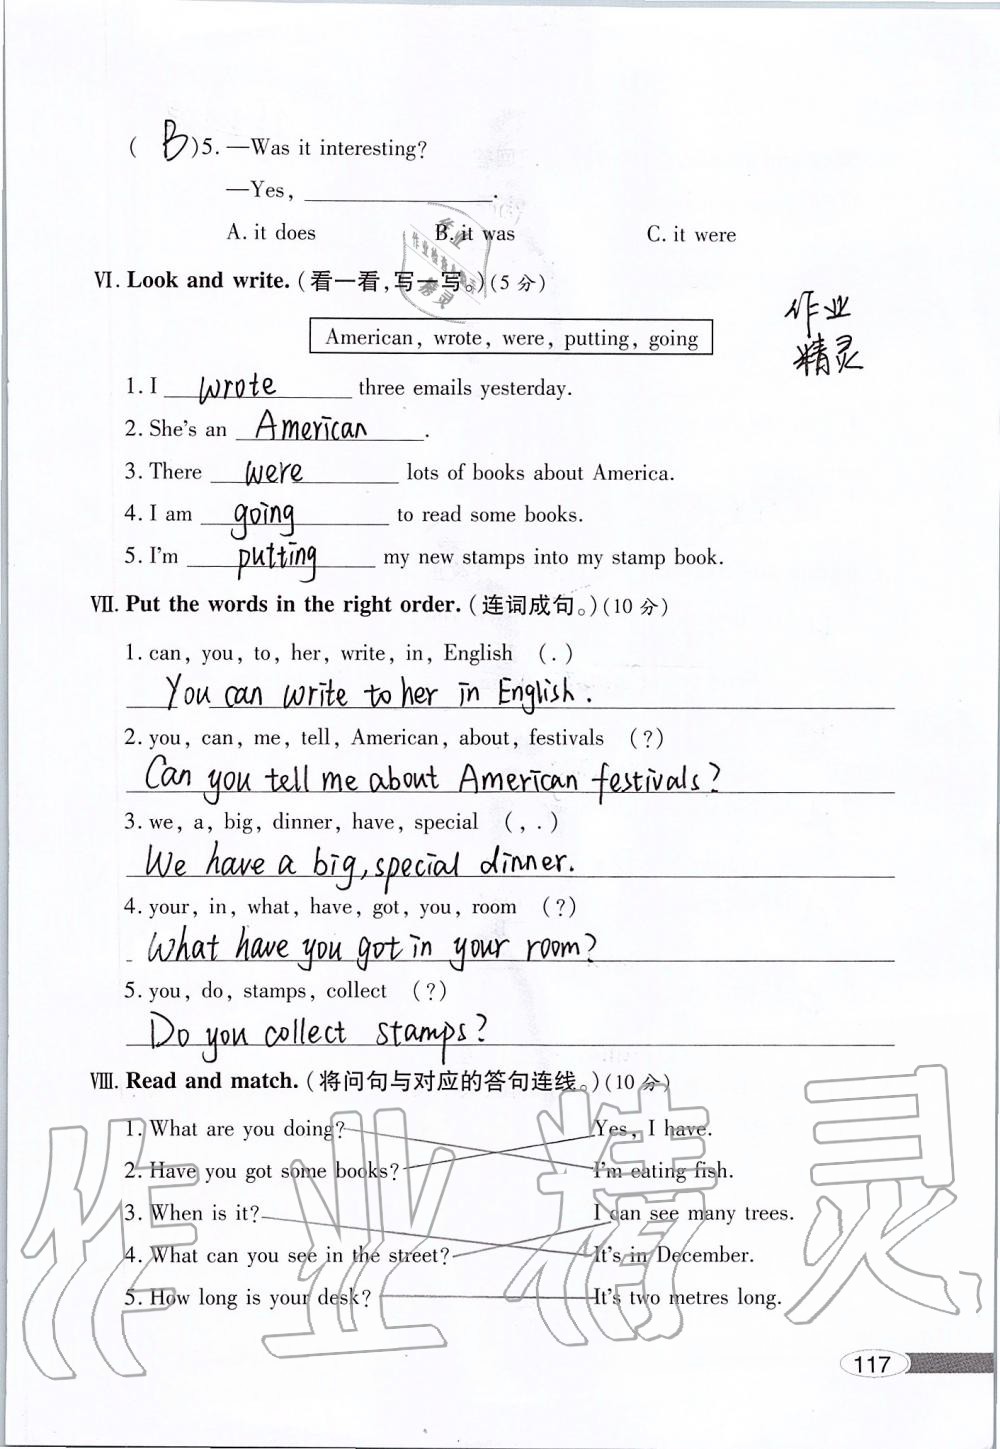 ( B )5. —Was it interesting?
—Yes, ______.
A. it does B. it was C. it were
Ⅵ. Look and write. (看一看,写一写。)(5 分)
作业
精灵
American, wrote, were, putting, going
1. I wrote three emails yesterday.
2. She's an American.
3. There were lots of books about America.
4. I am going to read some books.
5. I'm putting my new stamps into my stamp book.
Ⅶ. Put the words in the right order. (连词成句。)(10 分)
1. can, you, to, her, write, in, English (.)
You can write to her in English.
2. you, can, me, tell, American, about, festivals (?)
Can you tell me about American festivals?
3. we, a, big, dinner, have, special (, .)
We have a big, special dinner.
4. your, in, what, have, got, you, room (?)
What have you got in your room?
5. you, do, stamps, collect (?)
Do you collect stamps?
Ⅷ. Read and match. (将问句与对应的答句连线。)(10 分)
1. What are you doing? Yes, I have.
2. Have you got some books? I'm eating fish.
3. When is it? I can see many trees.
4. What can you see in the street? It's in December.
5. How long is your desk? It's two metres long.
作业精灵
117